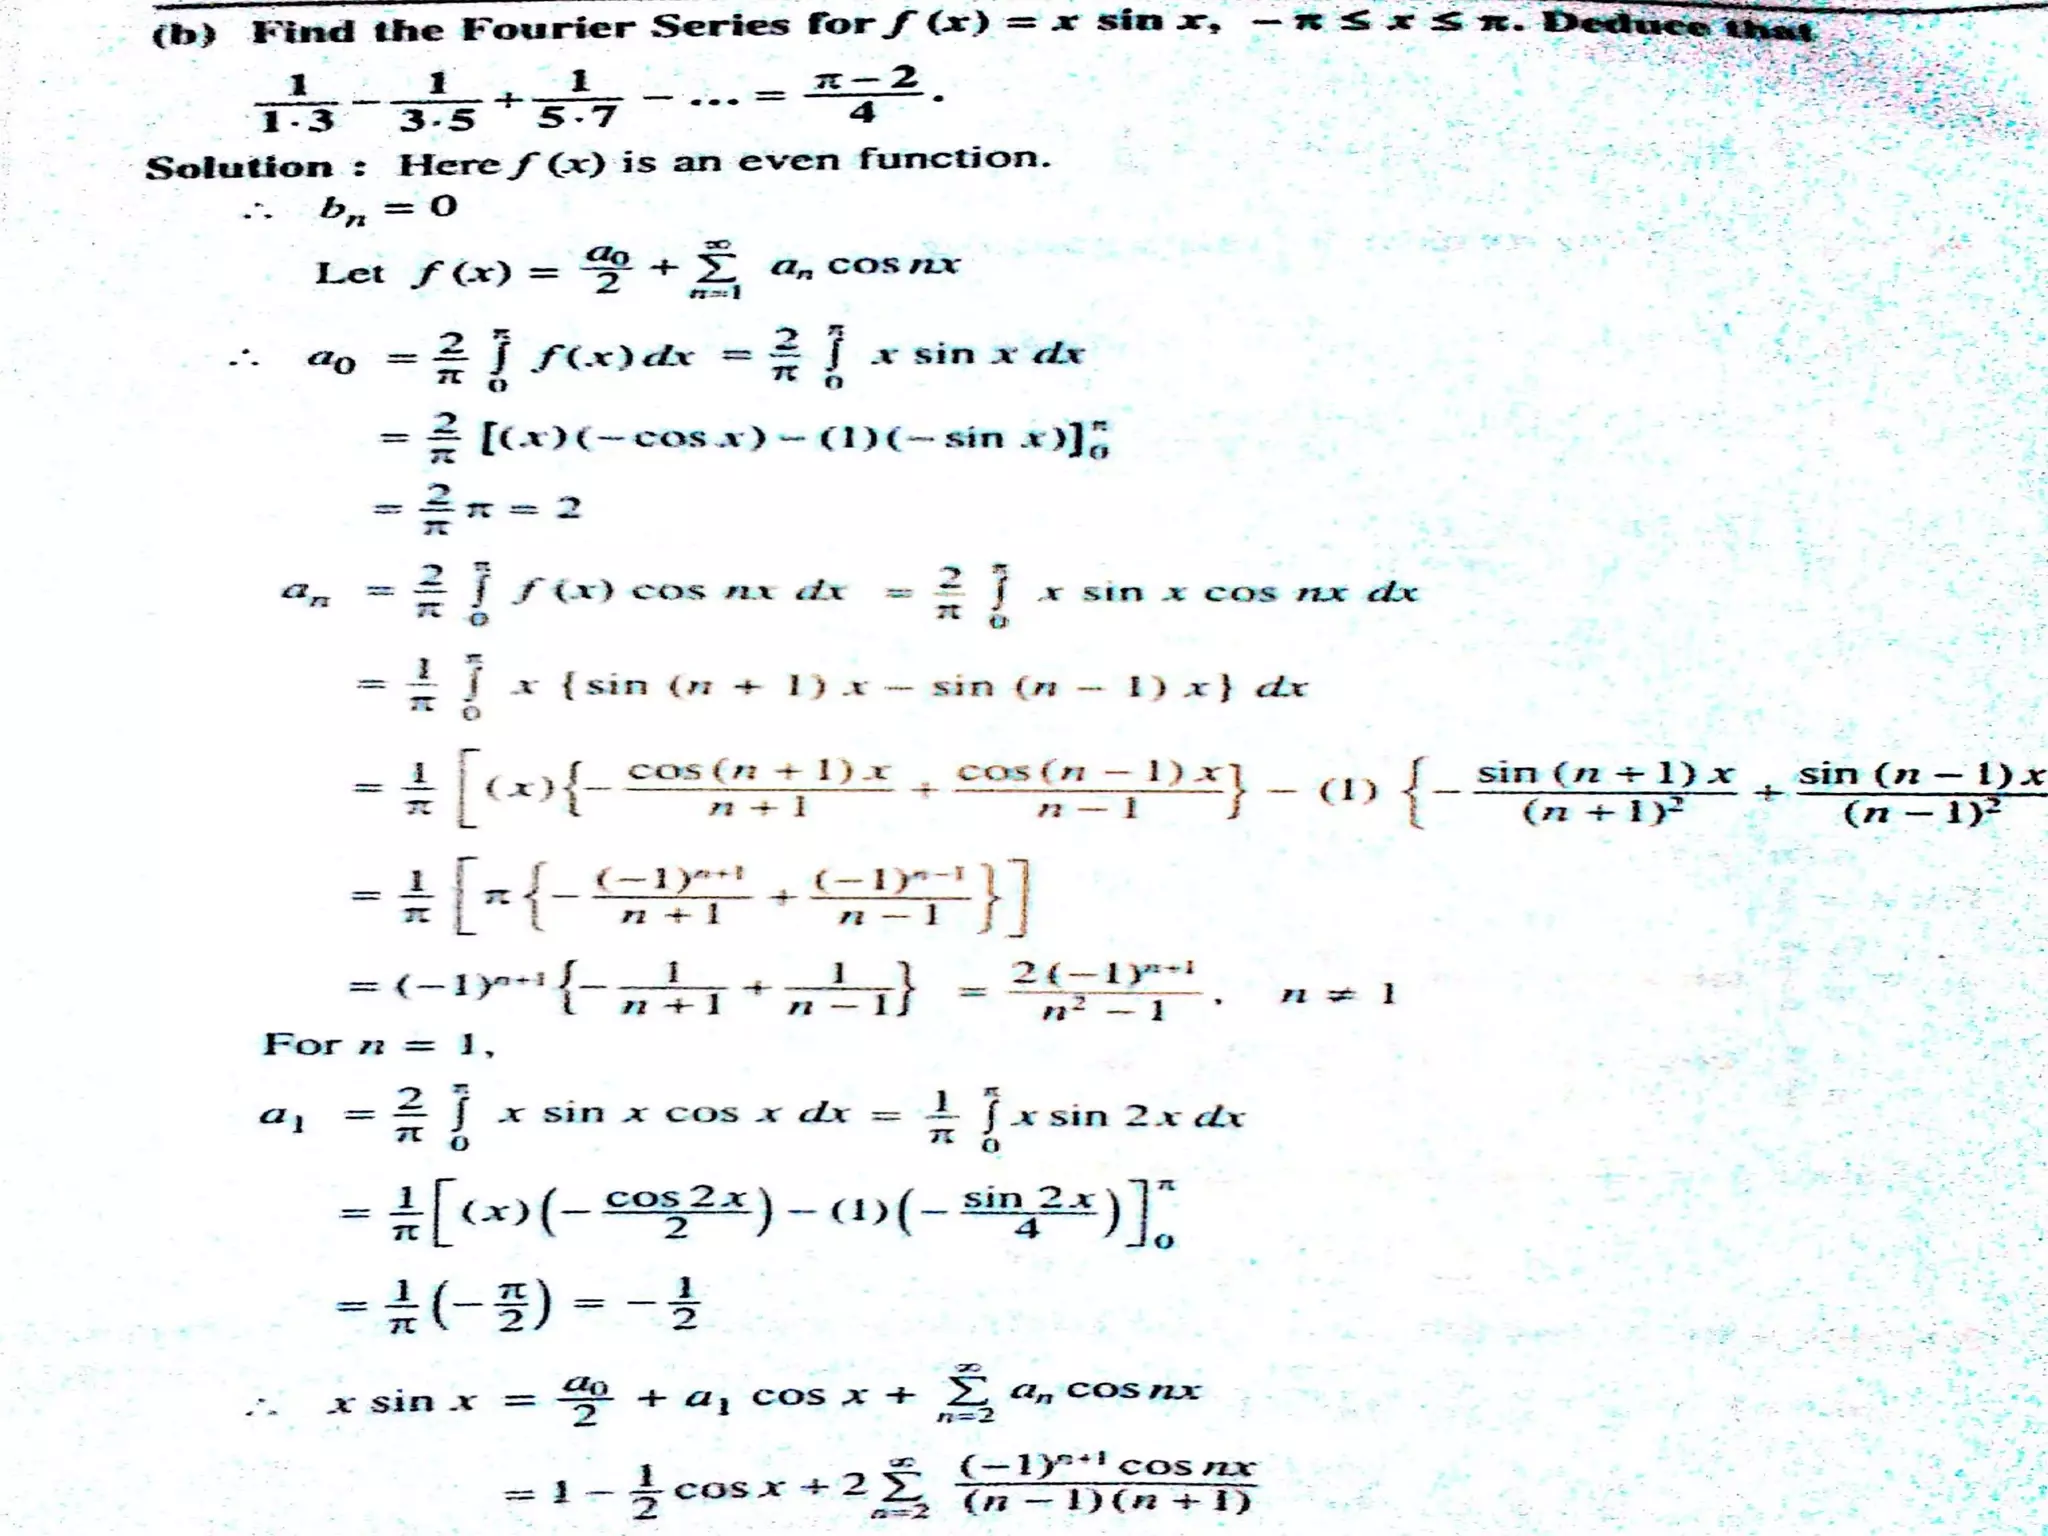 (b) Find the Fourier Series for f (x) = x sin x, − π ≤ x ≤ π. Deduce that
1/1·3 − 1/3·5 + 1/5·7 − ... = π − 2/4.
Solution : Here f (x) is an even function.
∴ bₙ = 0
Let f (x) = a₀/2 + ∑_{n=1}^{∞} aₙ cos nx
∴ a₀ = 2/π ∫₀^π f(x) dx = 2/π ∫₀^π x sin x dx
= 2/π [(x)(− cos x) − (1)(− sin x)]₀^π
= 2/π π = 2
aₙ = 2/π ∫₀^π f (x) cos nx dx = 2/π ∫₀^π x sin x cos nx dx
= 1/π ∫₀^π x {sin (n + 1) x − sin (n − 1) x} dx
= 1/π [(x){− cos (n + 1) x/n + 1 + cos (n − 1) x/n − 1} − (1) {− sin (n + 1) x/(n + 1)² + sin (n − 1) x/(n − 1)²
= 1/π [π {− (−1)ⁿ⁺¹/n + 1 + (−1)ⁿ⁻¹/n − 1}]
= (−1)ⁿ⁺¹ {− 1/n + 1 + 1/n − 1} = 2 (−1)ⁿ⁺¹/n² − 1, n ≠ 1
For n = 1,
a₁ = 2/π ∫₀^π x sin x cos x dx = 1/π ∫₀^π x sin 2x dx
= 1/π [(x)(− cos 2x/2) − (1)(− sin 2x/4)]₀^π
= 1/π (− π/2) = − 1/2
∴ x sin x = a₀/2 + a₁ cos x + ∑_{n=2}^{∞} aₙ cos nx
= 1 − 1/2 cos x + 2 ∑_{n=2}^{∞} (−1)ⁿ⁺¹ cos nx/(n − 1) (n + 1)